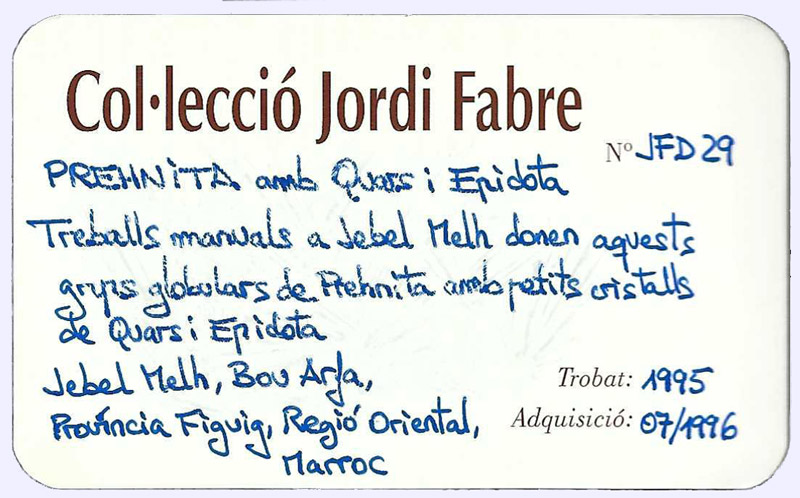 Col·lecció Jordi Fabre
Nº JFD 29
PREHNITA amb Quars i Epidota
Treballs manuals a Jebel Melh donen aquests
grups globulars de Prehnita amb petits cristalls
de Quars i Epidota
Jebel Melh, Bou Arfa,
Trobat: 1995
Província Figuig, Regió Oriental,
Adquisició: 07/1996
Marroc